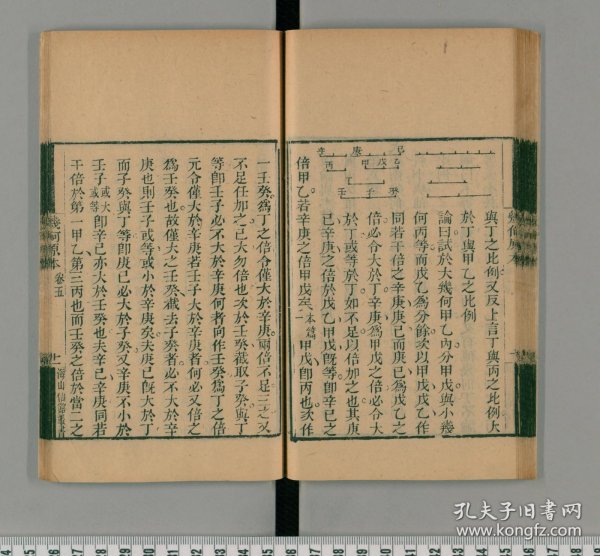 與丁之比例又反上言丁與丙之比例大
於丁與甲乙之比例
論曰試於大幾何甲乙內分甲戊與小幾
何丙等而戊乙為分餘次以甲戊戊乙作
同若干倍之辛庚庚己而庚已為戊乙之
倍必令大於丁辛庚為甲戊之倍必令大
於丁或等於丁如不足以倍加之也其庚
己辛庚之倍於戊乙甲戊既等即辛己之
倍甲乙若辛庚之倍甲戊本篇一甲戊即丙也次作
一壬癸為丁之倍令僅大於辛庚兩倍不足三之又
不足任加之已大勿倍也次於壬癸截取子癸與丁
等即壬子必不大於辛庚何者向作壬癸為丁之倍
元令僅大於辛庚若壬子大於辛庚者何必又倍之
為壬癸也故僅大之壬癸截去子癸者必不大於辛
庚也則壬子或等或小於辛庚矣夫庚己既大於丁
而子癸與丁等即庚已必大於子癸又辛庚不小於
壬子或大或等即辛己亦大於壬癸也夫辛己辛庚同若
干倍於第一甲乙第三丙也而壬癸之倍於當二之
幾何原本
卷五
十一
海山仙館叢書
己
庚
辛
乙
戊
甲
丙
丁
癸
子
壬
1
孔夫子旧书网
www.kongfz.com